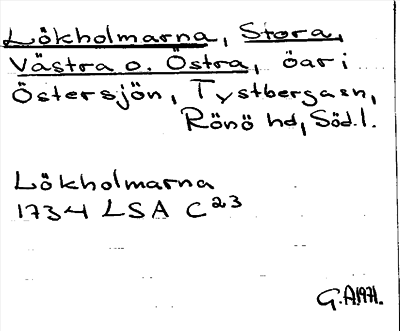 Lökholmarna, Stora,
Västra o. Östra, öar i
Östersjön, Tystberga sn,
Rönö hd, Södl.
Lökholmarna
1734 LSA C 23
G.A. 1971.